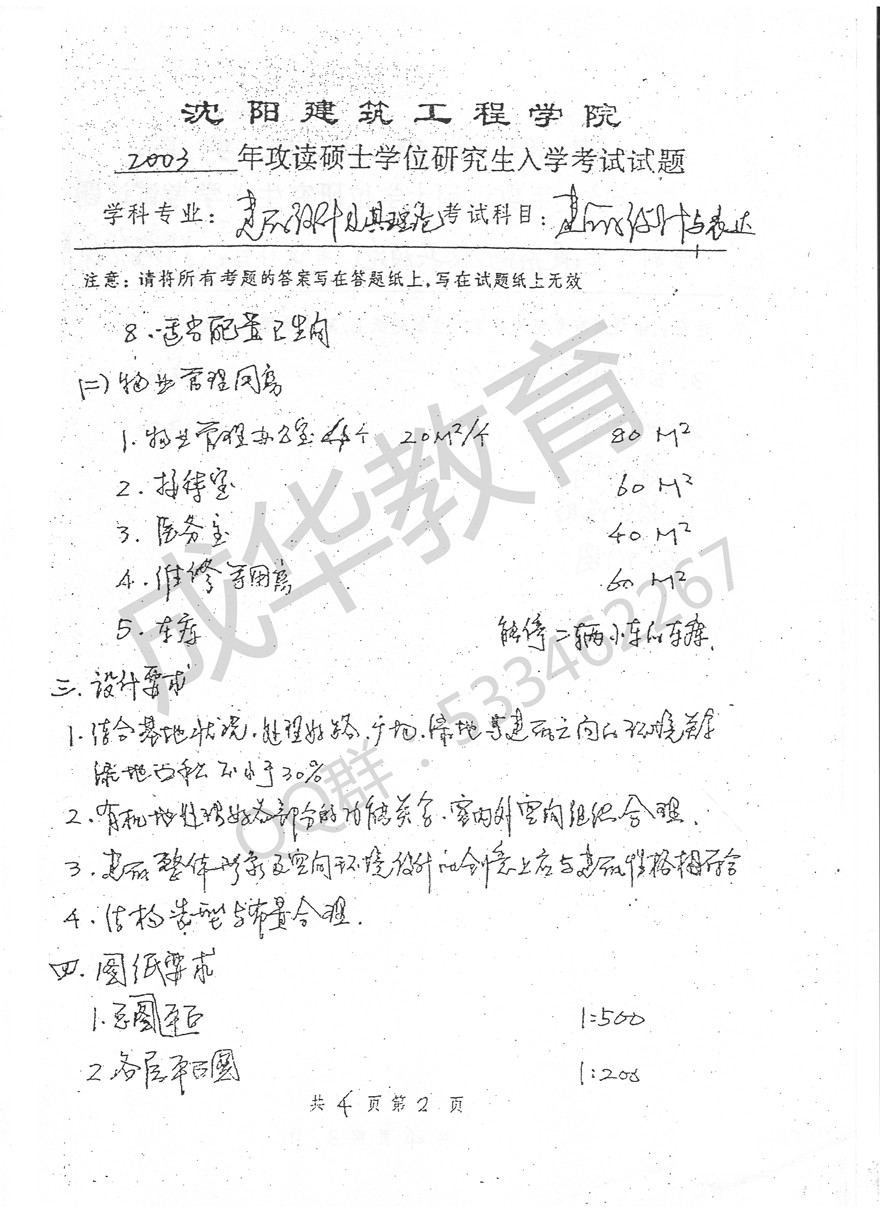 沈阳建筑工程学院
2003 年攻读硕士学位研究生入学考试试题
学科专业：建筑设计及其理论 考试科目：建筑设计与表达
注意：请将所有考题的答案写在答题纸上，写在试题纸上无效
8. 适当配置卫生间
(二) 物业管理用房
1. 物业管理办公室 4个 20M²/个 80 M²
2. 接待室 60 M²
3. 医务室 40 M²
4. 维修等用房 60 M²
5. 车库 能停二辆小车的车库.
三. 设计要求
1. 结合基地状况, 处理好路, 广场, 绿地与建筑之间的环境关系
绿地面积不小于30%
2. 有机地处理好各部分的功能关系, 室内外空间组织合理.
3. 建筑整体形象及空间环境设计的创意上应与建筑性格相符合
4. 结构造型与布置合理.
四. 图纸要求
1. 总图平面 1:500
2. 各层平面图 1:200
共 4 页第 2 页
成华教育
QQ群：533462267